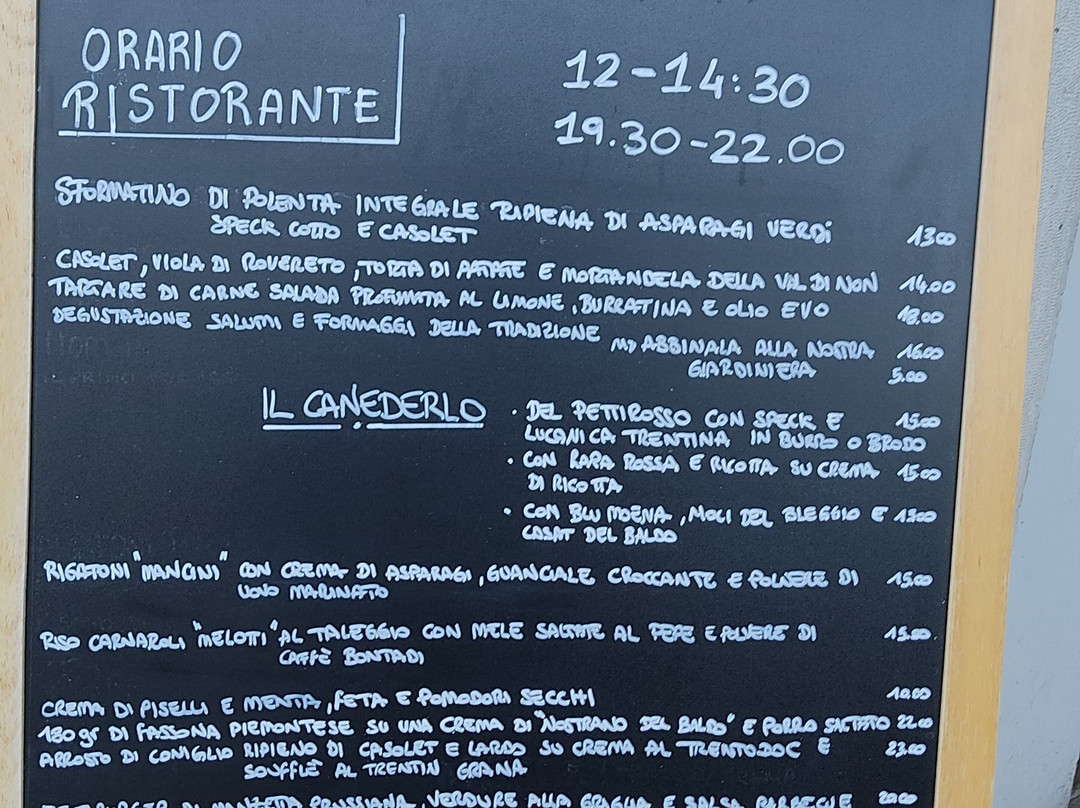 ORARIO
RISTORANTE
12-14:30
19.30-22.00
SFORMATINO DI POLENTA INTEGRALE RIPIENA DI ASPARAGI VERDI 13.00
SPECK COTTO E CASOLET
CASOLET, VIOLA DI ROVERETO, TORTA DI PATATE E MORTANDELA DELLA VAL DI NON 14.00
TARTARE DI CARNE SALADA PROFUMATA AL LIMONE, BURRATINA E OLIO EVO 18.00
DEGUSTAZIONE SALUMI E FORMAGGI DELLA TRADIZIONE 16.00
ABBINALA ALLA NOSTRA
GIARDINIERA 5.00
IL CANEDERLO
• DEL PETTIROSSO CON SPECK E 15.00
LUCANICA TRENTINA IN BURRO O BRODO
• CON RAPA ROSSA E RICOTTA SU CREMA 15.00
DI RICOTTA
• CON BLU MOENA, NOCI DEL BLEGGIO E 13.00
CASAT DEL BALDO
RIGATONI "MANCINI" CON CREMA DI ASPARAGI, GUANCIALE CROCCANTE E POLVERE DI 15.00
UOVO MARINATO
RISO CARNAROLI "MELOTTI" AL TALEGGIO CON MELE SALTATE AL PEPE E POLVERE DI 15.00
CAFFÈ BONTADI
CREMA DI PISELLI E MENTA, FETA E POMODORI SECCHI 10.00
180 gr DI FASSONA PIEMONTESE SU UNA CREMA DI "NOSTRANO DEL BALDO" E PORRO SALTATO 22.00
ARROSTO DI CONIGLIO RIPIENO DI CASOLET E LARDO SU CREMA AL TRENTODOC E 23.00
SOUFFLÈ AL TRENTIN GRANA
DI MANZETTA PRUSSIANA, VERDURE ALLA GRIGLIA E SALSA BARBECUE 20.00